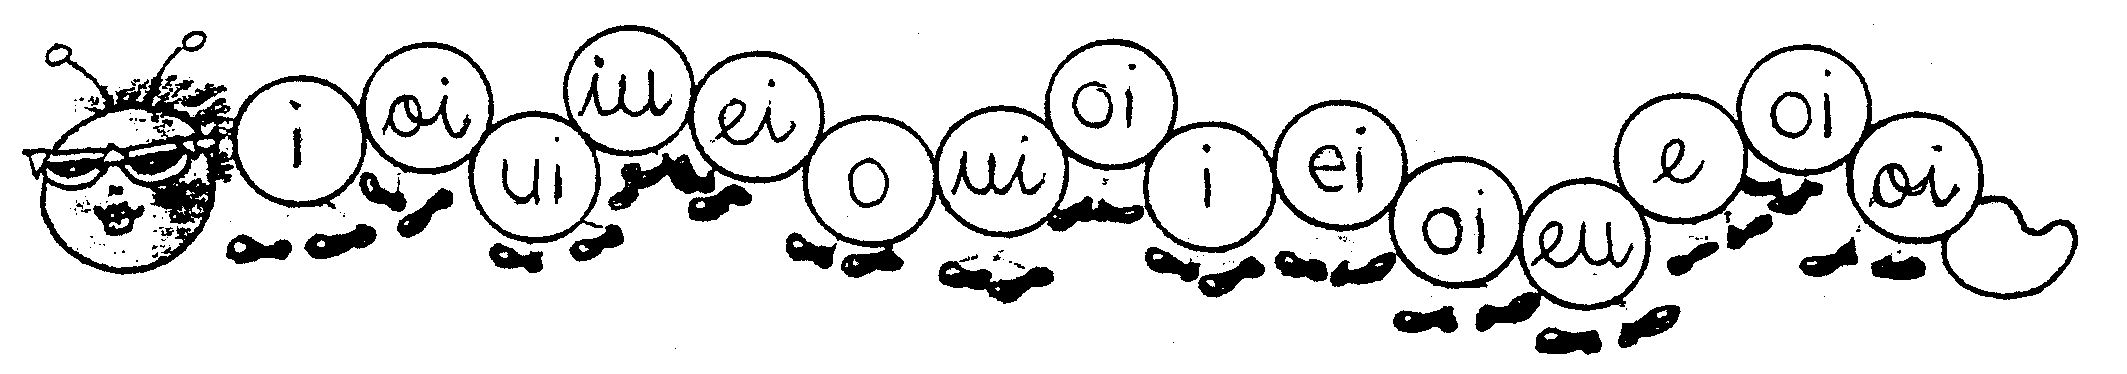 i oi ui iu ei o ui oi i ei oi eu e oi oi